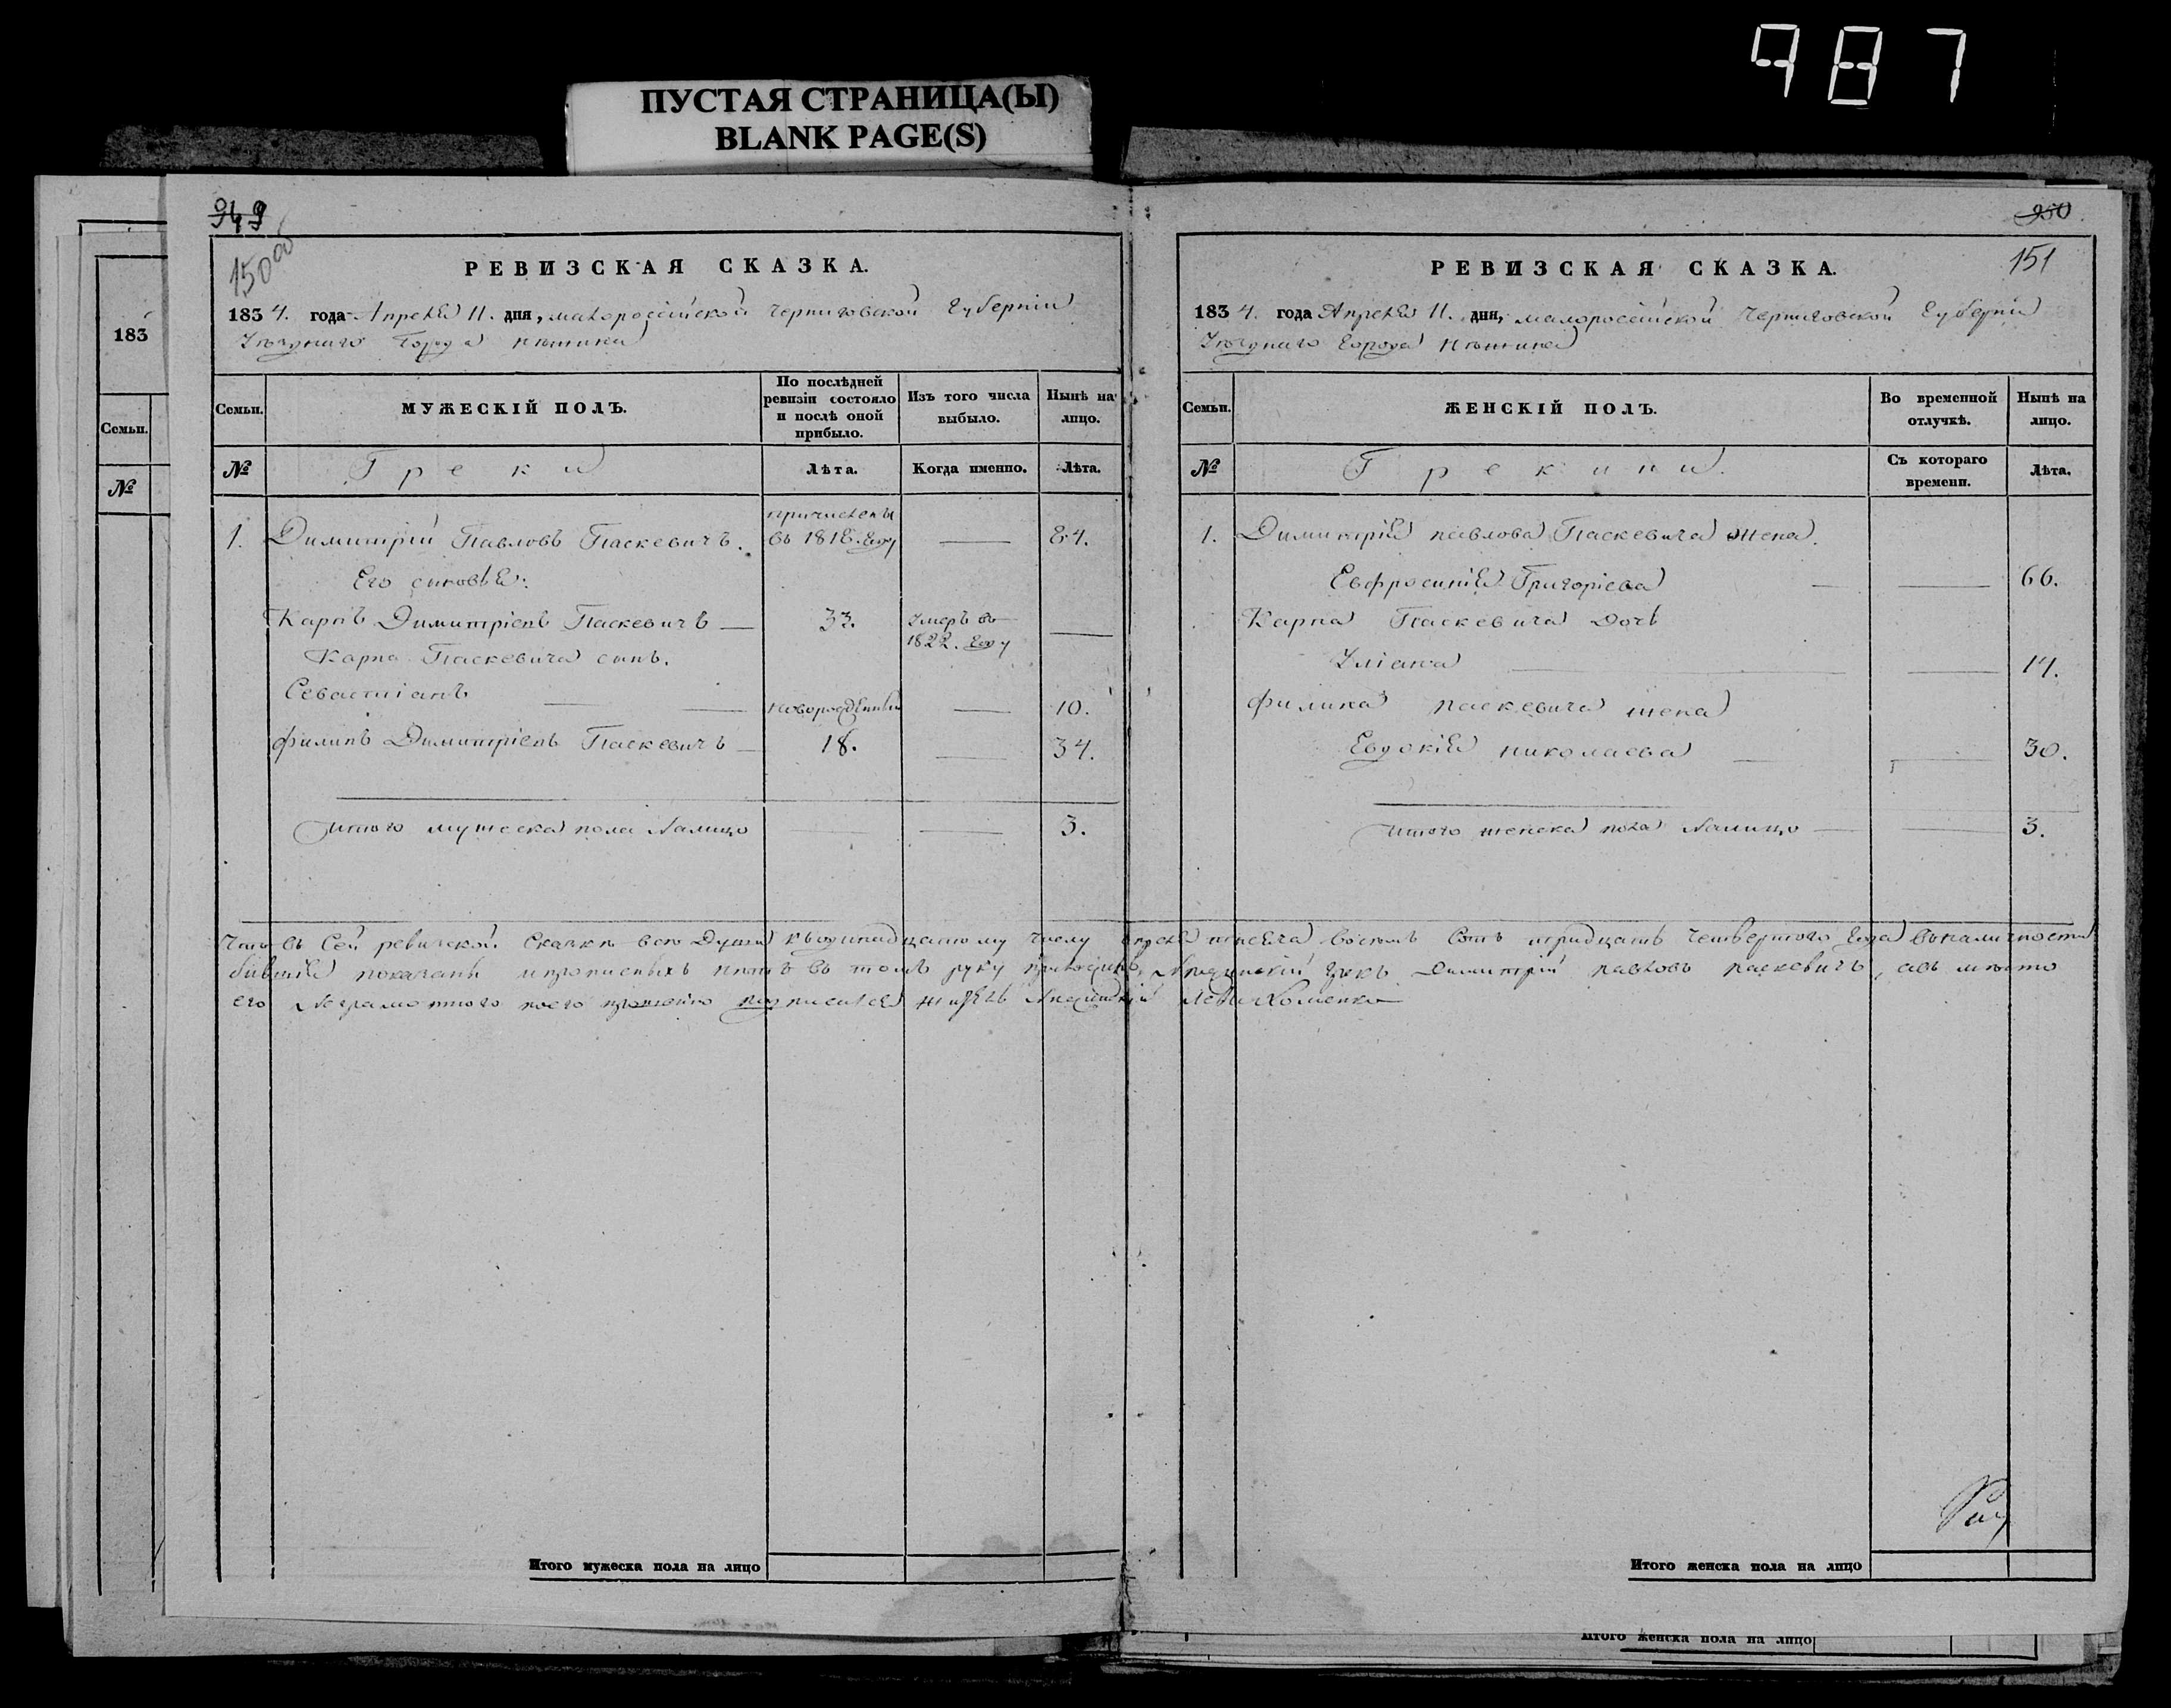 987
ПУСТАЯ СТРАНИЦА(Ы)
BLANK PAGE(S)
183
Семьи.
№
949
150 об
РЕВИЗСКАЯ СКАЗКА.
1834. года Апреля 11. дня, малоросiйской Черниговской Губернiи
Уѣзднаго Города Нѣжина
Семьи.
МУЖЕСКIЙ ПОЛЪ.
По послѣдней ревизiи состояло и послѣ оной прибыло.
Изъ того числа выбыло.
Нынѣ на лицо.
№
Греки
Лѣта.
Когда именно.
Лѣта.
1. Димитрiй Павловъ Паскевичъ. причисленъ въ 1818. году — 84.
Его сыновья:
Карпъ Димитрiевъ Паскевичъ — 33. Умеръ въ 1822. году —
Карпа Паскевича сынъ.
Севастiанъ — — новорожденный — 10.
Филипъ Димитрiевъ Паскевичъ — 18. — 34.
Итого мужеска пола налицо — — 3.
Итого мужеска пола на лицо
950
151
РЕВИЗСКАЯ СКАЗКА.
1834. года Апреля 11. дня, малоросiйской Черниговской Губернiи
Уѣзднаго Города Нѣжина
Семьи.
ЖЕНСКIЙ ПОЛЪ.
Во временной отлучкѣ.
Нынѣ на лицо.
№
Грекини.
Съ котораго времени.
Лѣта.
1. Димитрiя павлова Паскевича жена.
Евфросинiя Григорiева — — 66.
Карпа Паскевича дочь
Улiана — — 14.
Филипа паскевича жена
Евдокiя николаева — — 30.
Итого женска пола налицо — — 3.
Что въ Сей ревизской Сказкѣ всѣ Души къ одинадцатому числу апреля тысяча восемь Сотъ тридцать четвертого года въ наличности
бывшiя показаны и прописныхъ нѣтъ въ томъ руку Нѣжинскiй грекъ Димитрiй павловъ паскевичъ, а въ мѣсто
его неграмотного по его прошенiю подписался Нѣжинскiй
Итого женска пола на лицо
Итого женска пола на лицо